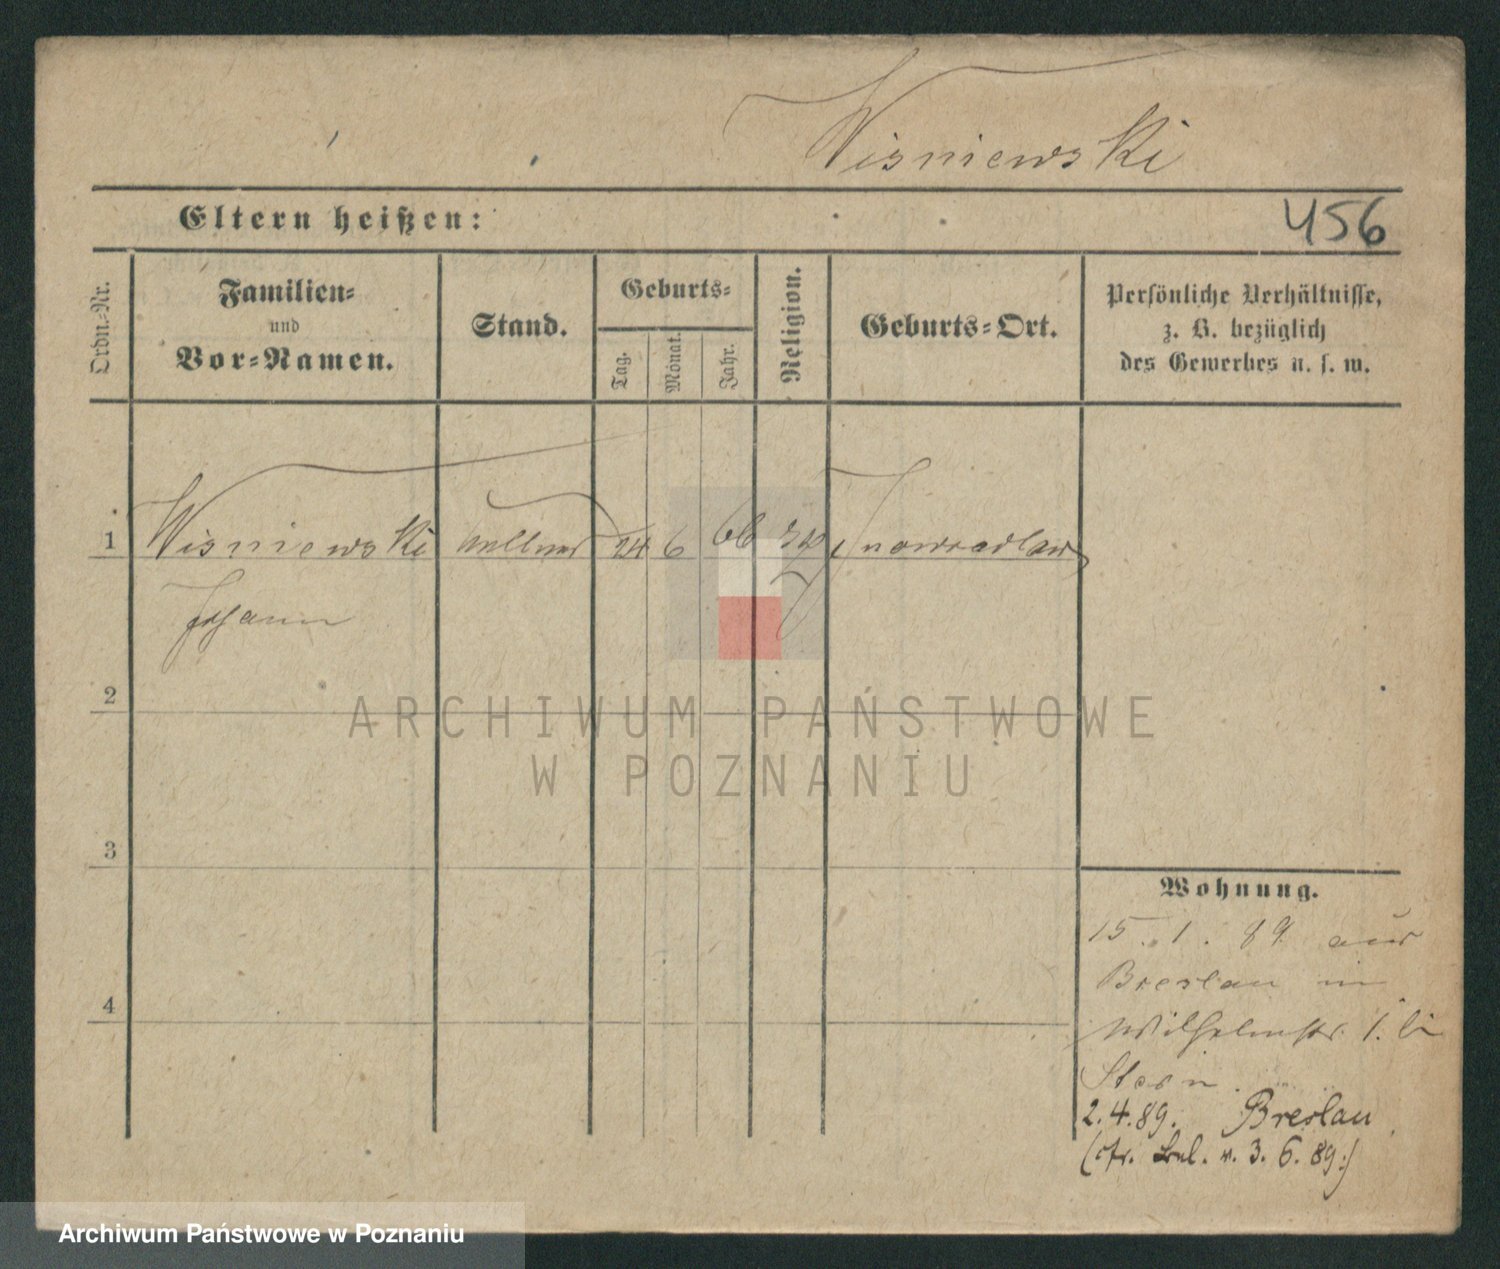 Wisniewski
Eltern heißen:
456
Ordn.-Nr.
Familien-
und
Vor-Namen.
Stand.
Geburts-
Tag.
Monat.
Jahr.
Religion.
Geburts-Ort.
Persönliche Verhältnisse,
z. B. bezüglich
des Gewerbes u. s. w.
1
Wisniewski
Kellner
24
6
66
Inowrazlaw
Johann
2
ARCHIWUM PAŃSTWOWE
W POZNANIU
3
Wohnung.
15. 1. 89 aus
Breslau in
Wilhelmstr. 1. bei
Stern
4
2.4.89. Breslau
v. 3. 6. 89:)
Archiwum Państwowe w Poznaniu